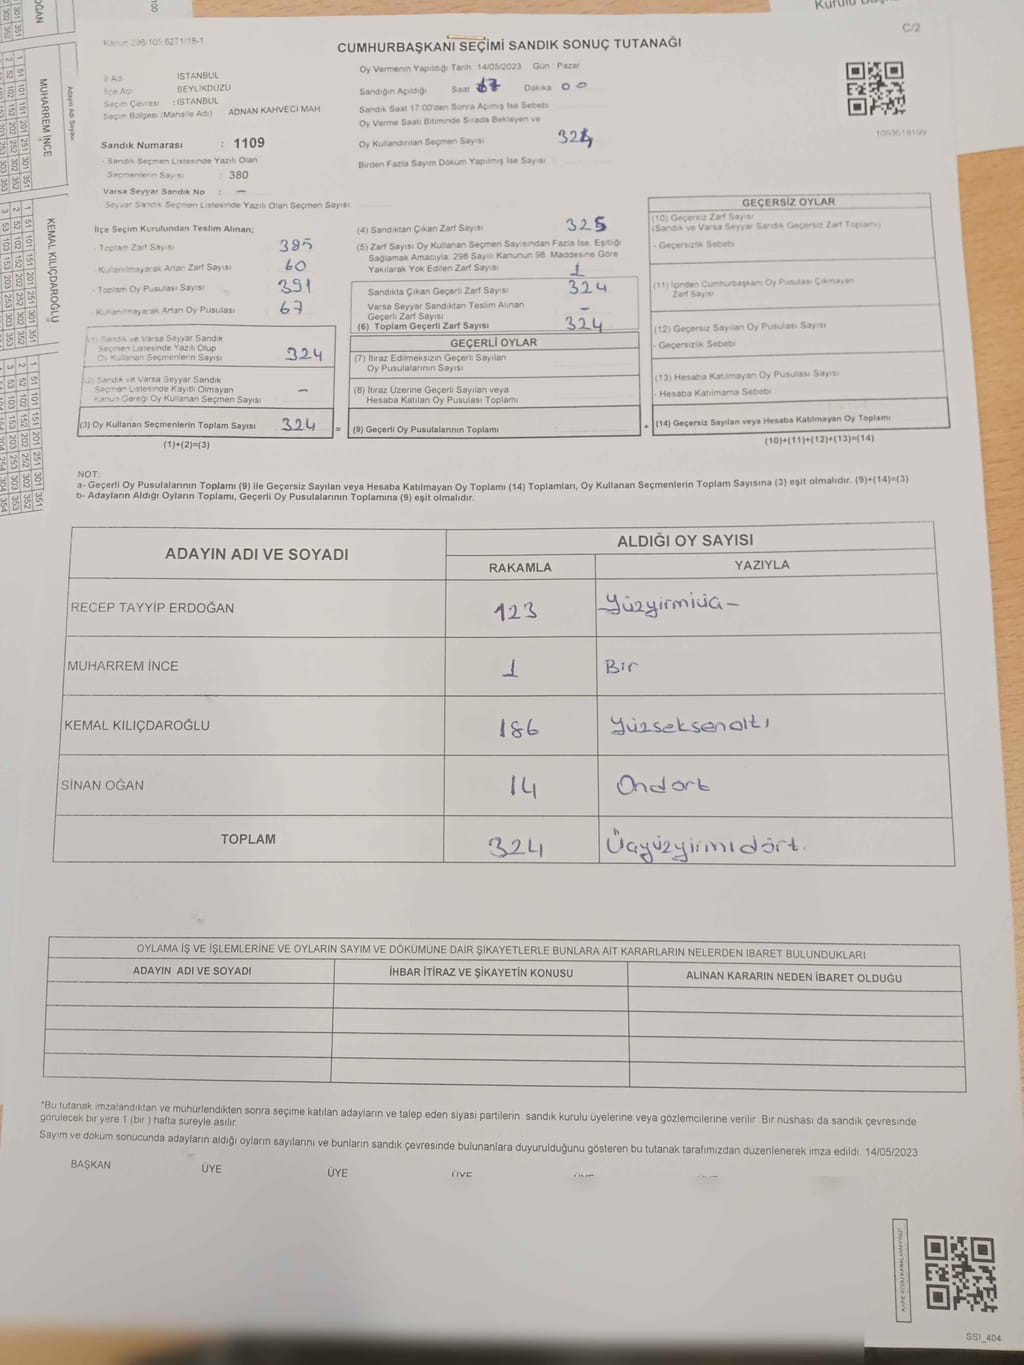 C/2
Kanun 298/105 6271/18-1
CUMHURBAŞKANI SEÇİMİ SANDIK SONUÇ TUTANAĞI
İl Adı İSTANBUL
İlçe Adı BEYLİKDÜZÜ
Seçim Çevresi : İSTANBUL
Seçim Bölgesi (Mahalle Adı) ADNAN KAHVECİ MAH
Sandık Numarası : 1109
- Sandık Seçmen Listesinde Yazılı Olan
Seçmenlerin Sayısı : 380
Varsa Seyyar Sandık No : —
Seyyar Sandık Seçmen Listesinde Yazılı Olan Seçmen Sayısı
Oy Vermenin Yapıldığı Tarih 14/05/2023 Gün : Pazar
Sandığın Açıldığı Saat 17 Dakika 00
Sandık Saat 17:00'den Sonra Açılmış İse Sebebi
Oy Verme Saati Bitiminde Sırada Bekleyen ve
Oy Kullandırılan Seçmen Sayısı 324
Birden Fazla Sayım Döküm Yapılmış İse Sayısı
1093618199
İlçe Seçim Kurulundan Teslim Alınan;
- Toplam Zarf Sayısı 385
- Kullanılmayarak Artan Zarf Sayısı 60
- Toplam Oy Pusulası Sayısı 391
Kullanılmayarak Artan Oy Pusulası 67
(1) Sandık ve Varsa Seyyar Sandık
Seçmen Listesinde Yazılı Olup
Oy Kullanan Seçmenlerin Sayısı 324
(2) Sandık ve Varsa Seyyar Sandık
Seçmen Listesinde Kayıtlı Olmayan
Kanun Gereği Oy Kullanan Seçmen Sayısı –
(3) Oy Kullanan Seçmenlerin Toplam Sayısı 324
(1)+(2)=(3)
=
(4) Sandıktan Çıkan Zarf Sayısı 325
(5) Zarf Sayısı Oy Kullanan Seçmen Sayısından Fazla İse, Eşitliği
Sağlamak Amacıyla, 298 Sayılı Kanunun 98. Maddesine Göre
Yakılarak Yok Edilen Zarf Sayısı 1
Sandıkta Çıkan Geçerli Zarf Sayısı 324
Varsa Seyyar Sandıktan Teslim Alınan
Geçerli Zarf Sayısı –
(6) Toplam Geçerli Zarf Sayısı 324
GEÇERLİ OYLAR
(7) İtiraz Edilmeksizin Geçerli Sayılan
Oy Pusulalarının Sayısı
(8) İtiraz Üzerine Geçerli Sayılan veya
Hesaba Katılan Oy Pusulası Toplamı
(9) Geçerli Oy Pusulalarının Toplamı
+
GEÇERSİZ OYLAR
(10) Geçersiz Zarf Sayısı
(Sandık ve Varsa Seyyar Sandık Geçersiz Zarf Toplamı)
- Geçersizlik Sebebi
(11) İçinden Cumhurbaşkanı Oy Pusulası Çıkmayan
Zarf Sayısı
(12) Geçersiz Sayılan Oy Pusulası Sayısı
- Geçersizlik Sebebi
(13) Hesaba Katılmayan Oy Pusulası Sayısı
- Hesaba Katılmama Sebebi
(14) Geçersiz Sayılan veya Hesaba Katılmayan Oy Toplamı
(10)+(11)+(12)+(13)=(14)
NOT:
a- Geçerli Oy Pusulalarının Toplamı (9) ile Geçersiz Sayılan veya Hesaba Katılmayan Oy Toplamı (14) Toplamları, Oy Kullanan Seçmenlerin Toplam Sayısına (3) eşit olmalıdır. (9)+(14)=(3)
b- Adayların Aldığı Oyların Toplamı, Geçerli Oy Pusulalarının Toplamına (9) eşit olmalıdır.
ADAYIN ADI VE SOYADI
ALDIĞI OY SAYISI
RAKAMLA YAZIYLA
RECEP TAYYİP ERDOĞAN 123 Yüzyirmiüç
MUHARREM İNCE 1 Bir
KEMAL KILIÇDAROĞLU 186 Yüzseksenaltı
SİNAN OĞAN 14 Ondört
TOPLAM 324 Üçyüzyirmidört.
OYLAMA İŞ VE İŞLEMLERİNE VE OYLARIN SAYIM VE DÖKÜMÜNE DAİR ŞİKAYETLERLE BUNLARA AİT KARARLARIN NELERDEN İBARET BULUNDUKLARI
ADAYIN ADI VE SOYADI İHBAR İTİRAZ VE ŞİKAYETİN KONUSU ALINAN KARARIN NEDEN İBARET OLDUĞU
*Bu tutanak imzalandıktan ve mühürlendikten sonra seçime katılan adayların ve talep eden siyasi partilerin sandık kurulu üyelerine veya gözlemcilerine verilir. Bir nüshası da sandık çevresinde
görülecek bir yere 1 (bir ) hafta süreyle asılır.
Sayım ve döküm sonucunda adayların aldığı oyların sayılarını ve bunların sandık çevresinde bulunanlara duyurulduğunu gösteren bu tutanak tarafımızdan düzenlenerek imza edildi. 14/05/2023
BAŞKAN ÜYE ÜYE ÜYE
SSI_404
MUHARREM İNCE
KEMAL KILIÇDAROĞLU
Adayın Adı Soyadı